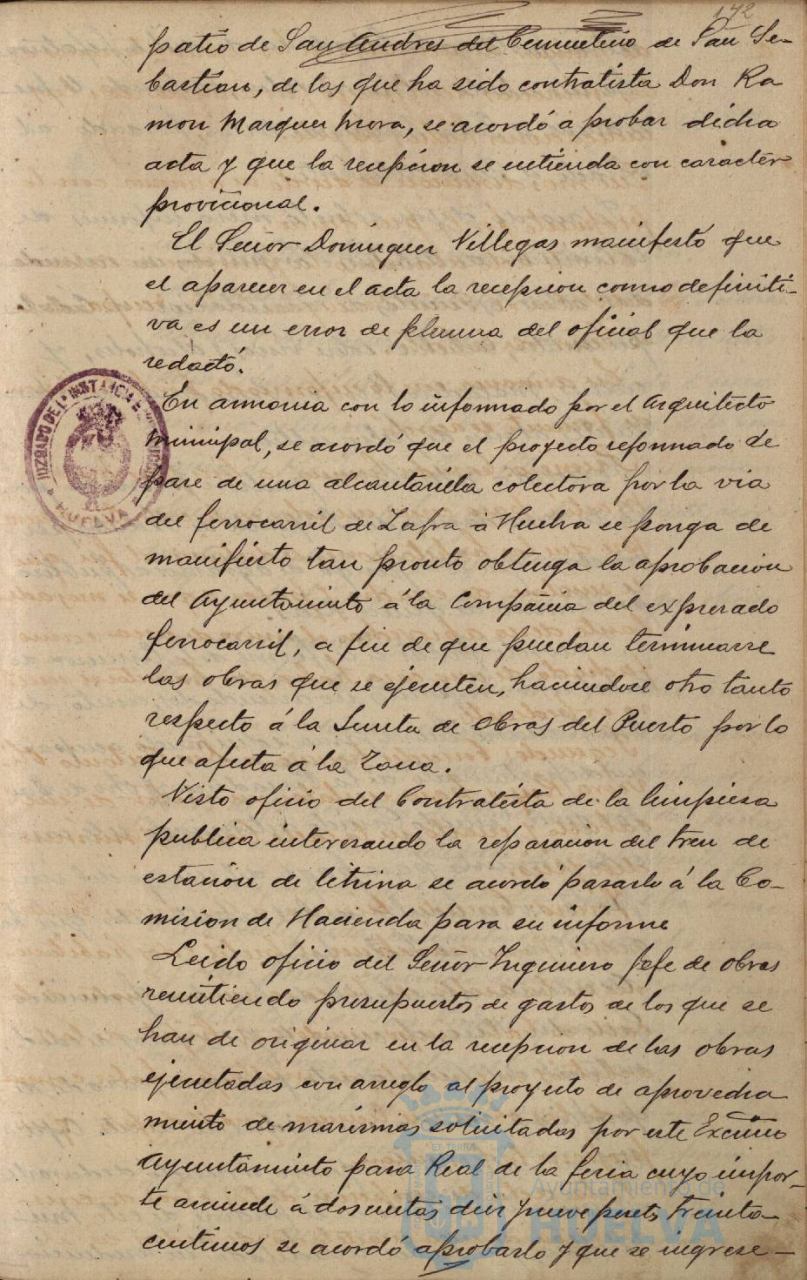 172
patio de San Andres del Cementerio de San Se-
bastian, de las que ha sido contratista Don Ra
mon Marquez Mora, se acordó aprobar dicha
acta y que la recepcion se entienda con caracter
provicional.
El Señor Dominguez Villegas manifestó que
el aparecer en el acta la recepcion como definiti-
va es un error de pluma del oficial que la
redactó.
En armonia con lo informado por el Arquitecto
Municipal, se acordó que el proyecto reformado de
pare de una alcantarilla colectora por la via
del ferrocarril de Zafra á Huelva se ponga de
manifiesto tan pronto obtenga la aprobacion
del Ayuntamiento á la Compañia del expresado
ferrocarril, a fin de que puedan terminarse
las obras que se ejecuten, haciendose otro tanto
respecto á la Junta de Obras del Puerto por lo
que afecta á la Zona.
Visto oficio del Contratista de la limpieza
publica interesando la reparacion del tren de
estación de letrina se acordó pasarlo á la Co-
mision de Hacienda para su informe
Leido oficio del Señor Ingeniero Jefe de Obras
remitiendo presupuestos de gastos de los que se
han de originar en la recepcion de las obras
ejecutadas con arreglo al proyecto de aprovecha
miento de marismas solicitadas por este Excmo
Ayuntamiento para Real de la feria cuyo impor-
te asciende á doscientas diez y nueve pesets treinta
centimos se acordó aprobarlo y que se ingrese-
JUZGADO DE 1ª INSTANCIA E INSTRUCCION
HUELVA
Ayuntamiento de
HUELVA